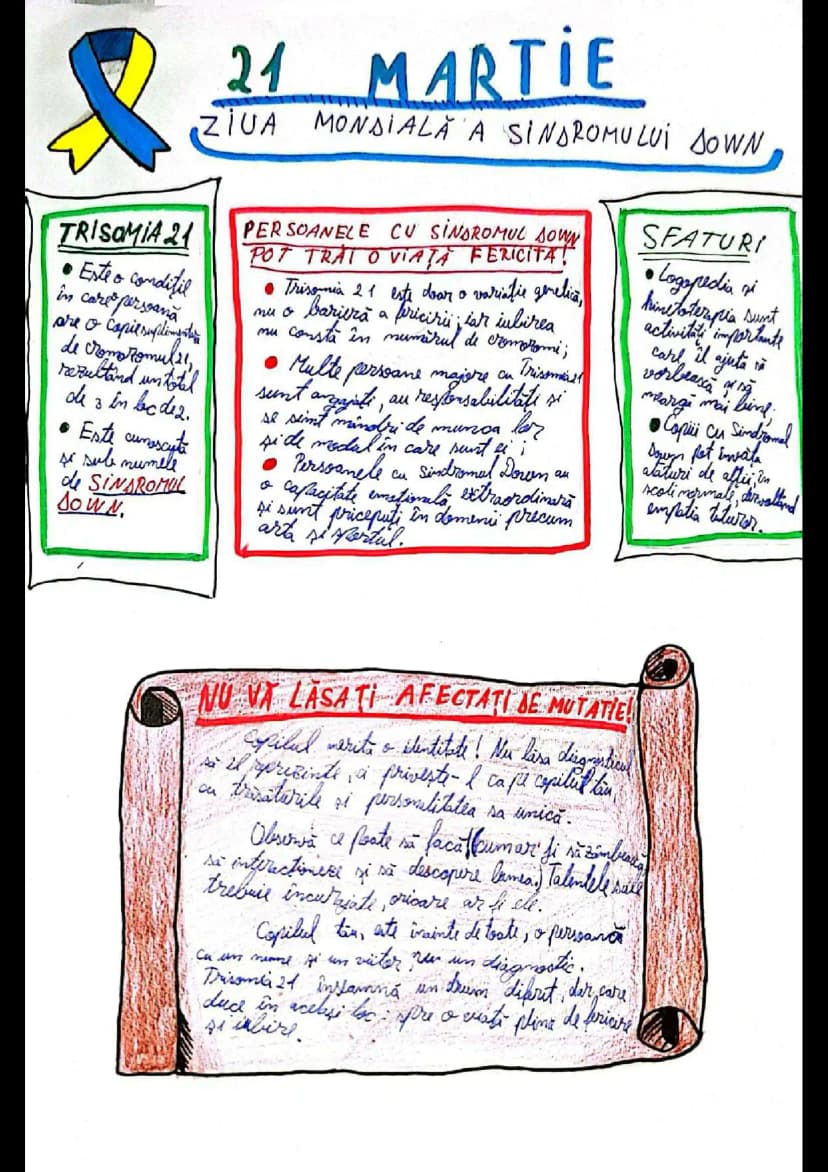 21 MARTiE
ZiUA MONDIALĂ A SiNDROMULUi DOWN
TRISOMIA 21
• Este o condiție
în care persoana
are o copie suplimentară
de cromozomul 21,
rezultând un total
de 3 în loc de 2.
• Este cunoscută
și sub numele
de SiNDROMUL
DOWN.
PERSOANELE CU SiNDROMUL DOWN
POT TRĂI O ViAȚĂ FERICITĂ!
• Trisomia 21 este doar o variație genetică,
nu o barieră a fericirii, iar iubirea
nu constă în numărul de cromozomi;
• Multe persoane majore cu Trisomia 21
sunt angajați, au responsabilități și
se simt mândri de munca lor
și de modul în care sunt ei;
• Persoanele cu sindromul Down au
o capacitate emoțională extraordinară
și sunt pricepuți în domenii precum
arta și sportul.
SFATURI
• Logopedia și
kinetoterapia sunt
activități importante
care îl ajută să
vorbească și să
meargă mai bine.
• Copiii cu Sindromul
Down pot învăța
alături de alții, în
școli normale, dezvoltând
empatia tuturor.
NU VĂ LĂSAȚI AFECTAȚI DE MUTAȚIE!
Copilul merită o identitate! Nu lăsa diagnosticul
să îl reprezinte, ci privește-l ca pe copilul tău,
cu trăsăturile și personalitatea sa unică.
Observă ce poate să facă (cum ar fi să zâmbească,
să interacționeze și să descopere lumea.) Talentele sale
trebuie încurajate, oricare ar fi ele.
Copilul tău, este înainte de toate, o persoană
cu un nume și un viitor, nu un diagnostic.
Trisomia 21 înseamnă un drum diferit, dar care
duce în același loc: spre o viață plină de fericire
și iubire.